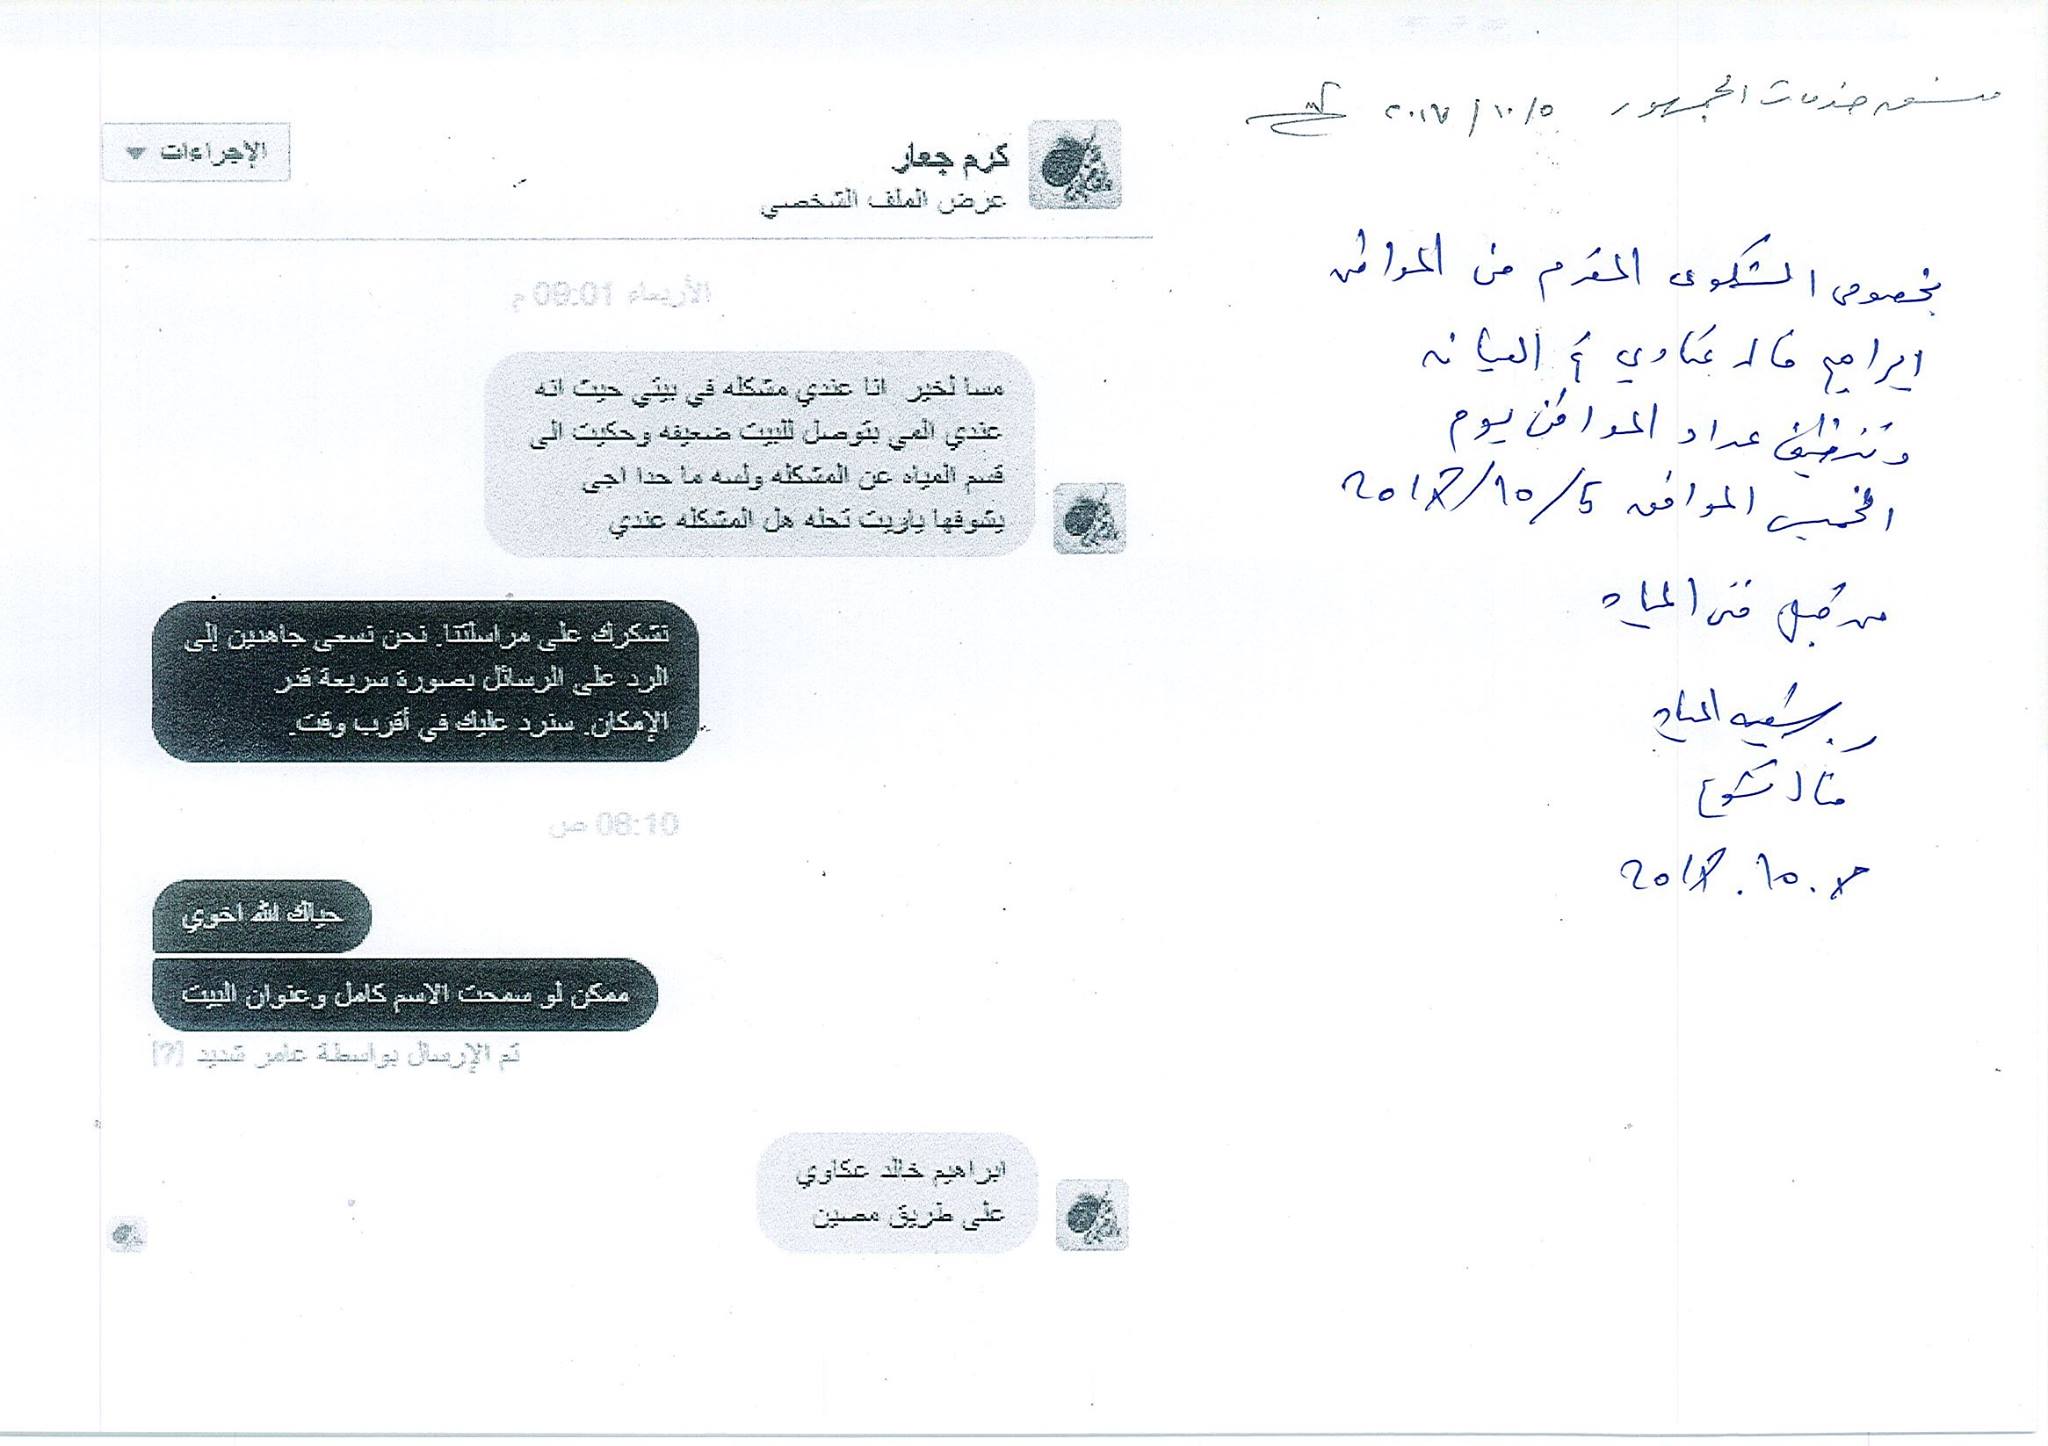 منسق خدمات الجمهور ٢٠١٧/١٠/٥
بخصوص الشكوى المقدم من المواطن
ابراهيم خالد عكاوي تم الصيانه
وتنظيف عداد المواطن يوم
الخميس الموافق 2017/10/5
من قبل فني المياه
المياه
منال
2017.10.8
الإجراءات
كرم جعار
عرض الملف الشخصي
الأربعاء 09:01 م
مسا لخير انا عندي مشكله في بيتي حيث انه
عندي المي بتوصل للبيت ضعيفه وحكيت الى
قسم المياه عن المشكله ولسه ما حدا اجى
يشوفها ياريت تحله هل المشكله عندي
نشكرك على مراسلتنا. نحن نسعى جاهدين إلى
الرد على الرسائل بصورة سريعة قدر
الإمكان. سنرد عليك في أقرب وقت.
08:10 ص
حياك الله اخوي
ممكن لو سمحت الاسم كامل وعنوان البيت
تم الإرسال بواسطة عامر شديد [?]
ابراهيم خالد عكاوي
على طريق مصين